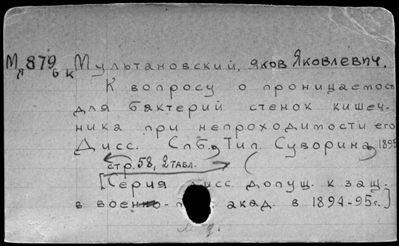 М 879 Мультановский, Яков Яковлевич.
К вопросу о проницаемость
для бактерий стенок кишеч-
ника при непроходимости его
Дисс. Спб. Тип. Суворина, 1895
стр. 58, 2 табл.
[Серия дисс. допущ. к защ.
в военно- акад. в 1894-95 г.]